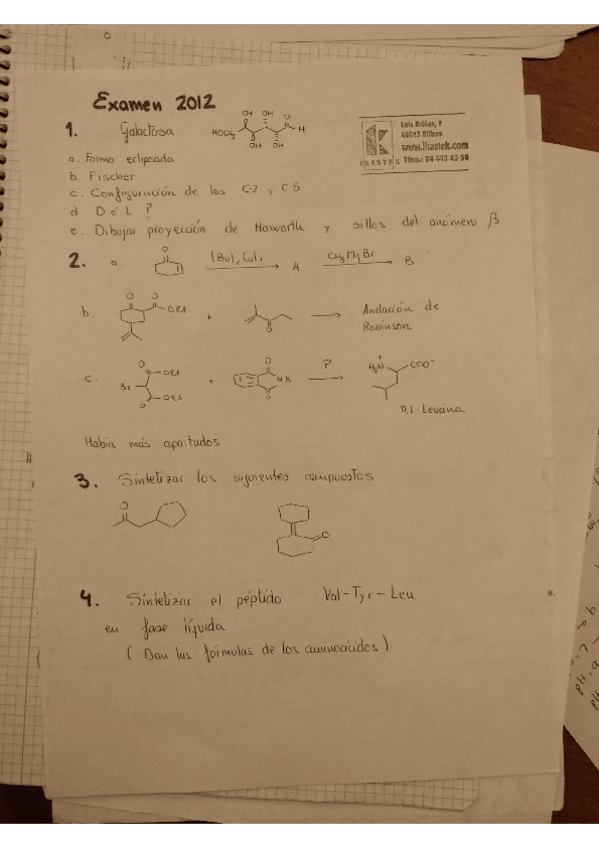 Examen 2012
1. Galactosa
OH OH O
HOCH2 H
OH OH
Luis Briñas, 7
48013 Bilbao
www.ikastek.com
IKASTEK Tfno.: 94 445 45 50
a. Forma eclipsada
b. Fischer
c. Configuración de los C-2 y C5
d D ó L ?
e. Dibujar proyección de Haworth y sillas del anómero β
2. a. O (Bu)2CuLi A CH3MgBr B
b. O O OEt + O Anelación de
Robinson
c. O OEt Br O OEt + O NK O P H3N COO-
D,L-Leucina
Había más apartados
3. Sintetizar los siguientes compuestos
O O
4. Sintetizar el péptido Val-Tyr-Leu
en fase líquida
( Dan las fórmulas de los aminoácidos )